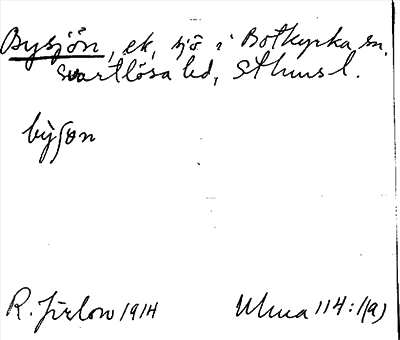 Bysjön, ek, sjö i Botkyrka sn,
Svartlösa hd, Sthms l.
bỳʃơn
R. Jirlow 1914 Ulma 114:1(a)